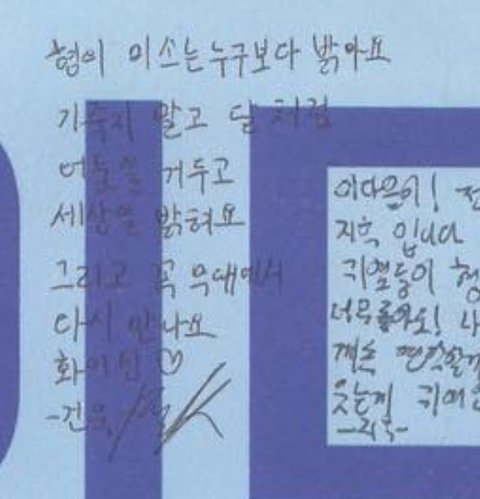 형이 미소는 누구보다 밝아요
기죽지 말고 달 처럼
어둠을 거두고
세상을 밝혀요
그리고 꼭 무대에서
다시 만나요
화이팅 ♡
-건우
이다을이! 전
지훅 입니다
귀염둥이 형
너무 좋아요! 나
계속 연락할게
웃는게 귀여운
-지훅-